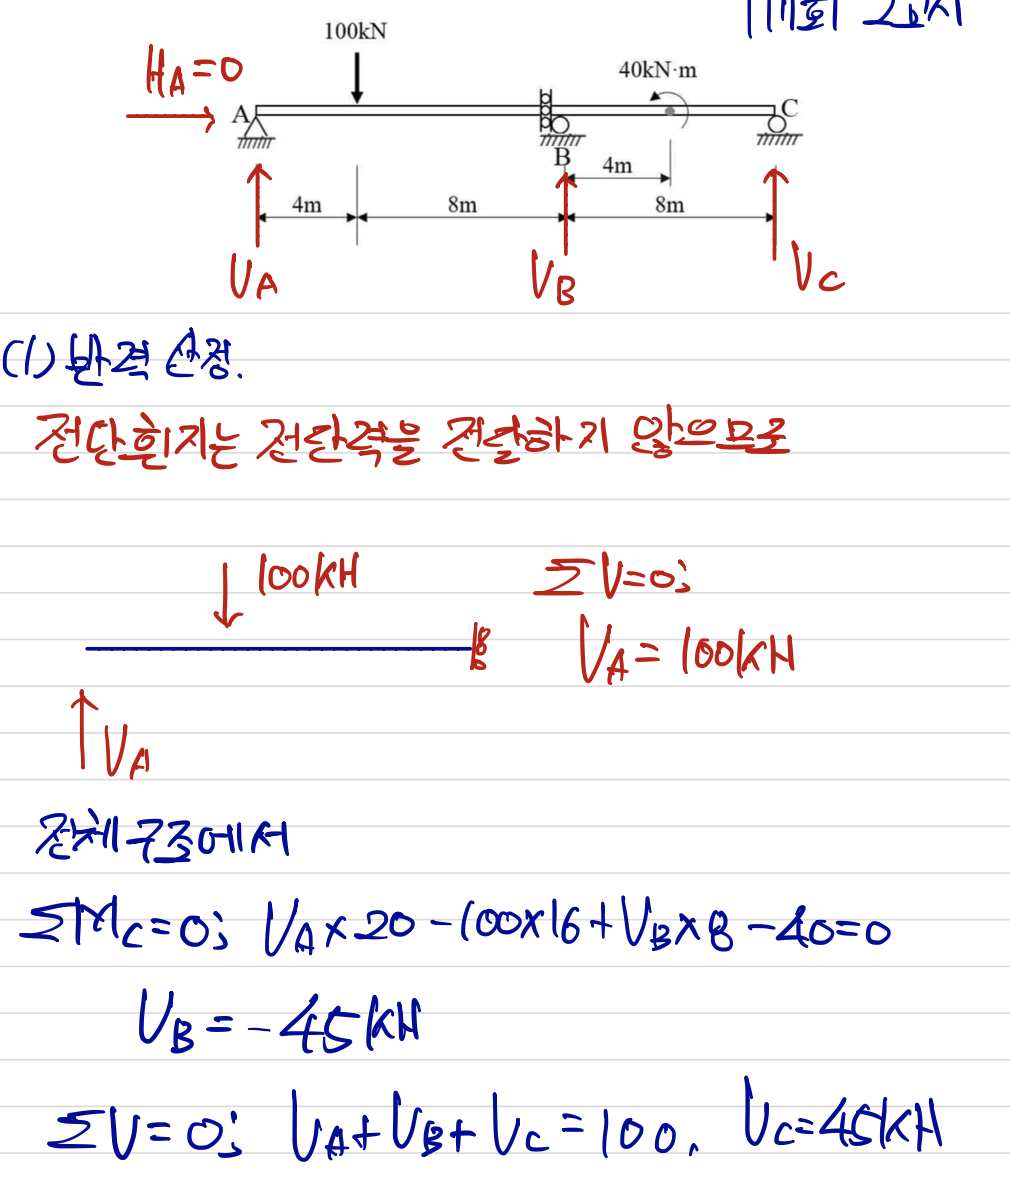 111회 2교시
100kN
H_A=0
40kN·m
A
C
B
4m
4m
8m
8m
V_A
V_B
V_C
(1) 반력 산정.
전단힌지는 전단력을 전달하기 않으므로
100KN
ΣV=0;
V_A=100KN
V_A
전체구조에서
ΣM_C=0; V_A×20-100×16+V_B×8-40=0
V_B=-45KN
ΣV=0; V_A+V_B+V_C=100, V_C=45KN